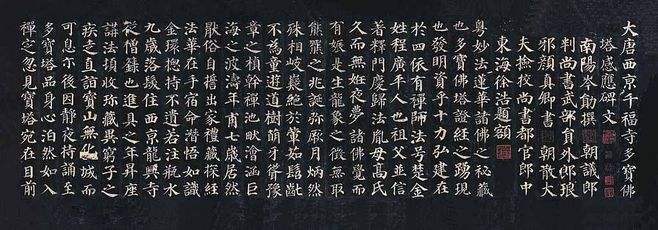 大唐西京千福寺多寶佛
塔感應碑文
南陽岑勛撰 朝議郎
判尚書武部員外郎琅
邪顏真卿書 朝散大
夫撿挍尚書都官郎中
東海徐浩題額
粵妙法蓮華諸佛之秘藏
也多寶佛塔證經之踴現
也發明資乎十力弘建在
於四依有禪師法号楚金
姓程廣平人也祖父並信
著釋門慶歸法胤母高氏
久而無姙夜夢諸佛覺而
有娠是生龍象之徵無取
熊羆之兆誕弥厥月炳然
殊相岐嶷絕於葷茹髫齔
不為童遊道樹萌牙聳豫
章之楨幹禪池畎澮涵巨
海之波濤年甫七歲居然
厭俗自誓出家禮藏探經
法華在手宿命潛悟如識
金環捴持不遺若注瓶水
九歲落髮住西京龍興寺
從僧籙也進具之年昇座
講法頓收珍藏異窮子之
疾走直詣寶山無化城而
可息尔後因靜夜持誦至
多寶塔品身心泊然如入
禪定忽見寶塔宛在目前